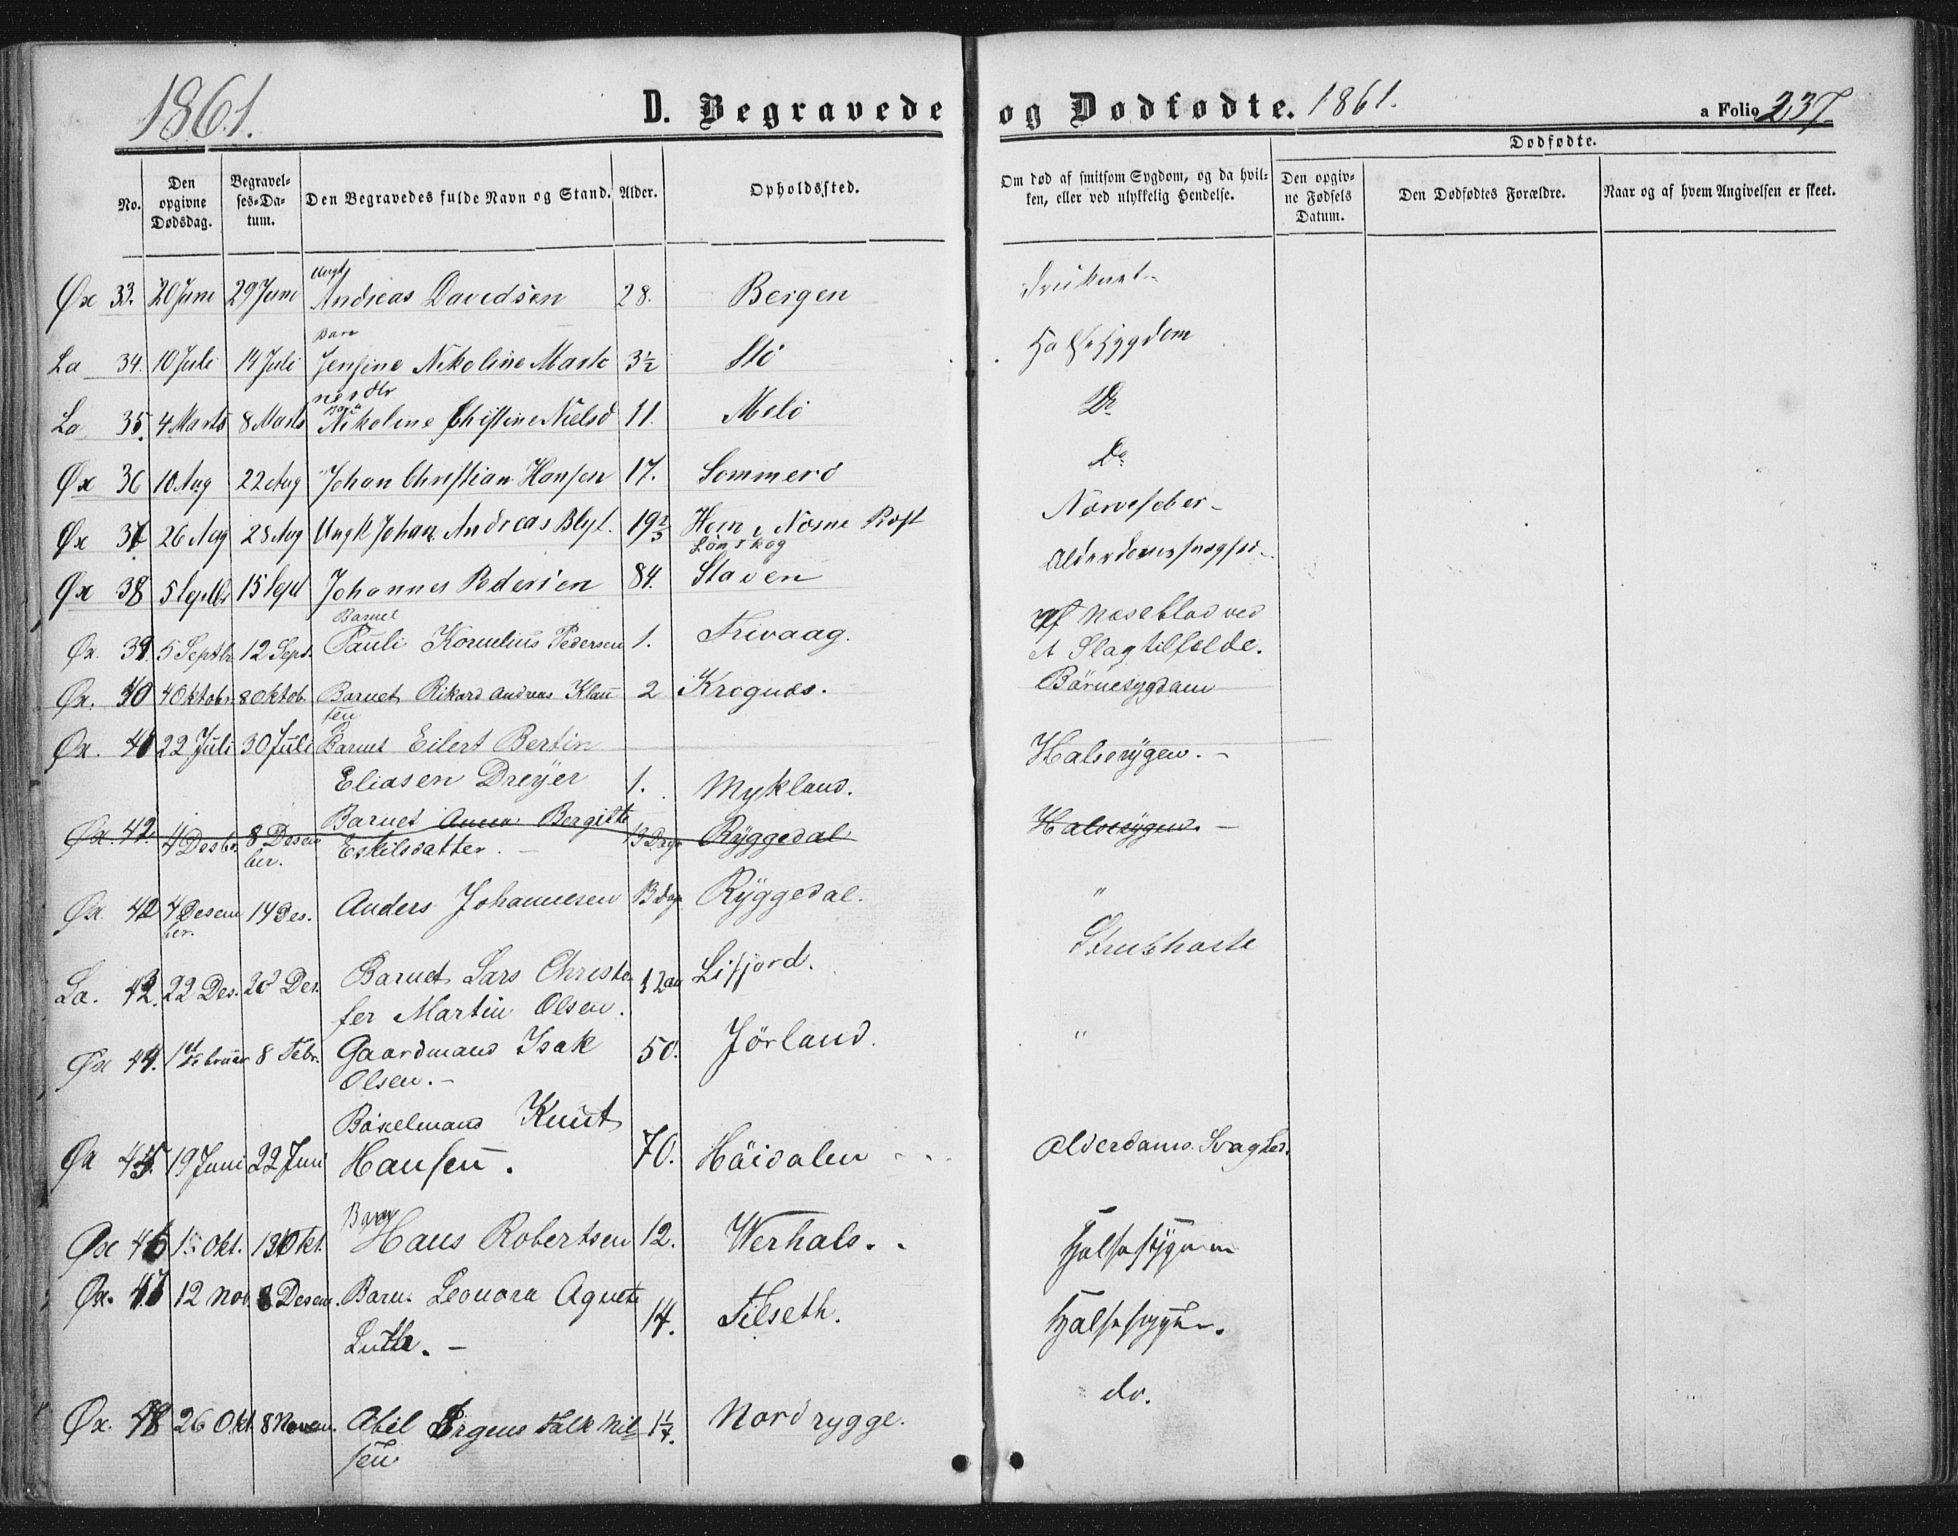 1861.
D. Begravede og Dødfødte. 1861.
a Folio 237.
Dødfødte.
No.
Den opgivne Dødsdag.
Begravelses-Datum.
Den Begravedes fulde Navn og Stand.
Alder.
Opholdssted.
Om død af smitsom Sygdom, og da hvilken, eller ved ulykkelig Hendelse.
Den opgivne Fødsels Datum.
Den Dødfødtes Forældre.
Naar og af hvem Angivelsen er skeet.
Øx 33. 20 Juni 29 Juni Ungk Andreas Davidsen 28. Bergen Druknet
La 34. 10 Juli 14 Juli Barn Jensine Nikoline Marte 3½ Stö Halssygdom
La 35. 4 Marts 8 Marts Nikoline Christine Nielsd 11. Melö Do
Øx 36 10 Aug 22 Aug Johan Christian Hansen 17. Sommerö Do
Øx 37 26 Aug 28 Aug Ungk Johan Andreas Blyt. 19 Nervefeber
Lönskog
Øx 38 5 Septbr 15 Sept Johannes Pedersen 84. Staven
Øx. 39. 5 Septbr 12 Sept. Barnet Pauli Kornelius Pedersen 1. Frivaag. af Næseblod ved
et Slagtilfælde.
Øx. 40 4 Oktobr. 8 Oktob. Barnet Rikard Andreas Klau 2 Krognæs. Börnesygdam
sen
Øx. 41 22 Juli 30 Juli Barnet Eilert Bertin Halsesygen. -
Eliasen Dreÿer 1. Mykland.
Øx. 42. 4 Desbr. 8 Desem Barnet Anna Bergitte 13 Dage Rÿggedal Halsesygen. -
ber. Eskilsdatter. -
Øx. 42 4 Desem 14 Des. Anders Johannesen 13 dage Rÿggedal. "
ber.
La. 43. 22 Des. Des. Barnet Lars Christo 12 Lifjord. Strubhoste
fer Martin Olsen.
Øx 44. 1 Februar 8 Febr. Gaardmand Isak 50. Jörland. "
Olsen. -
Böxelmand Knut
Øx 45. 19 Juni 22 Juni Hansen. 70. Höidalen Alderdams. Svaghed.
Øx 46 1 Okt. 13 Okt. Barn Hans Robertsen 12. Werhals. Halsesÿgen
Øx. 47 12 Nov. 8 Desem. Barn. Leonora Agnete
Luth. - 14. Tilseth. Halsesygen.
Øx. 48 26 Okt. 8 Novem. Abel Falk Nil 1 Nordrygge. do.
sen